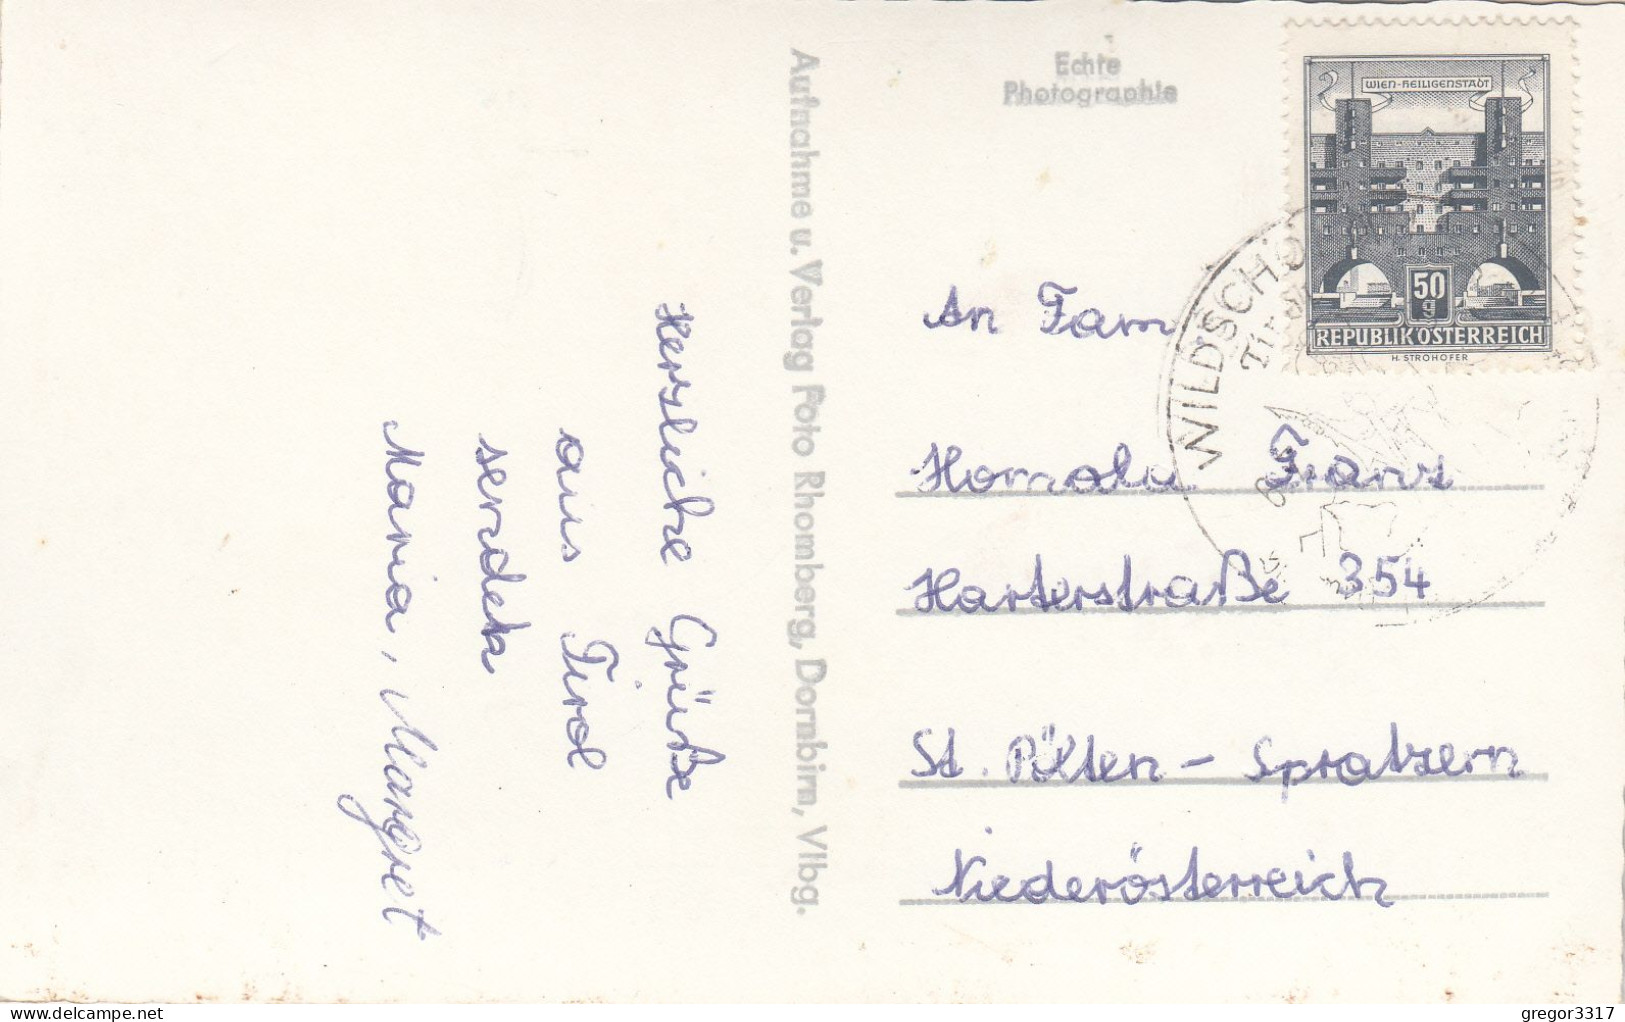 Herzliche Grüße
aus Tirol
senden
Maria, Margret
Aufnahme u. Verlag Foto Rhomberg, Dornbirn, Vlbg.
Echte
Photographie
WIEN-HEILIGENSTADT
50
g
REPUBLIK ÖSTERREICH
H. STROHOFER
WILDSCHÖ
Tirol
An Fam
Homola Franz
Harterstraße 354
St. Pölten - Spratzern
Niederösterreich
www.delcampe.net
gregor3317